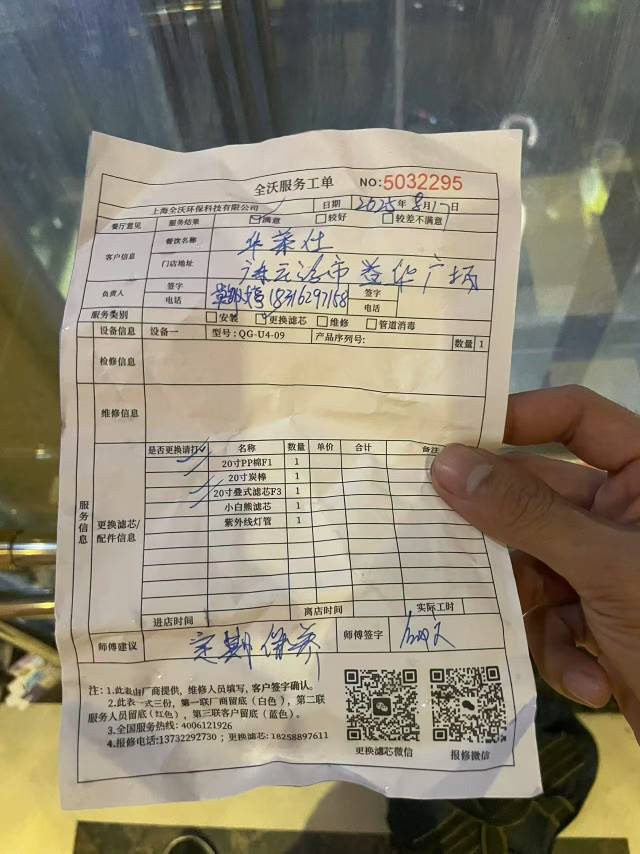 全沃服务工单 NO:5032295
上海全沃环保科技有限公司 日期 2025年8月17日
餐厅意见 服务结果 ☑满意 □较好 □较差不满意
客户信息 餐饮名称 华莱士
门店地址 益华广场
负责人 签字 签字
电话 18316297158 电话
服务类别 □安装 ☑更换滤芯 □维修 □管道消毒
设备信息 设备一 型号: QG-U4-09 产品序列号: 数量 1
检修信息
维修信息
服务信息
更换滤芯/配件信息
是否更换请打✓ 名称 数量 单价 合计 备注
✓ 20寸PP棉F1 1
20寸炭棒 1
✓ 20寸叠式滤芯F3 1
小白熊滤芯 1
紫外线灯管 1
进店时间 离店时间 实际工时
师傅建议 定期保养 师傅签字
注: 1.此表由厂商提供, 维修人员填写, 客户签字确认。
2.此表一式三份, 第一联厂商留底(白色), 第二联
服务人员留底(红色), 第三联客户留底(蓝色)。
3.全国服务热线: 4006121926
4.报修电话:13732292730 ; 更换滤芯: 18258897611
更换滤芯微信 报修微信